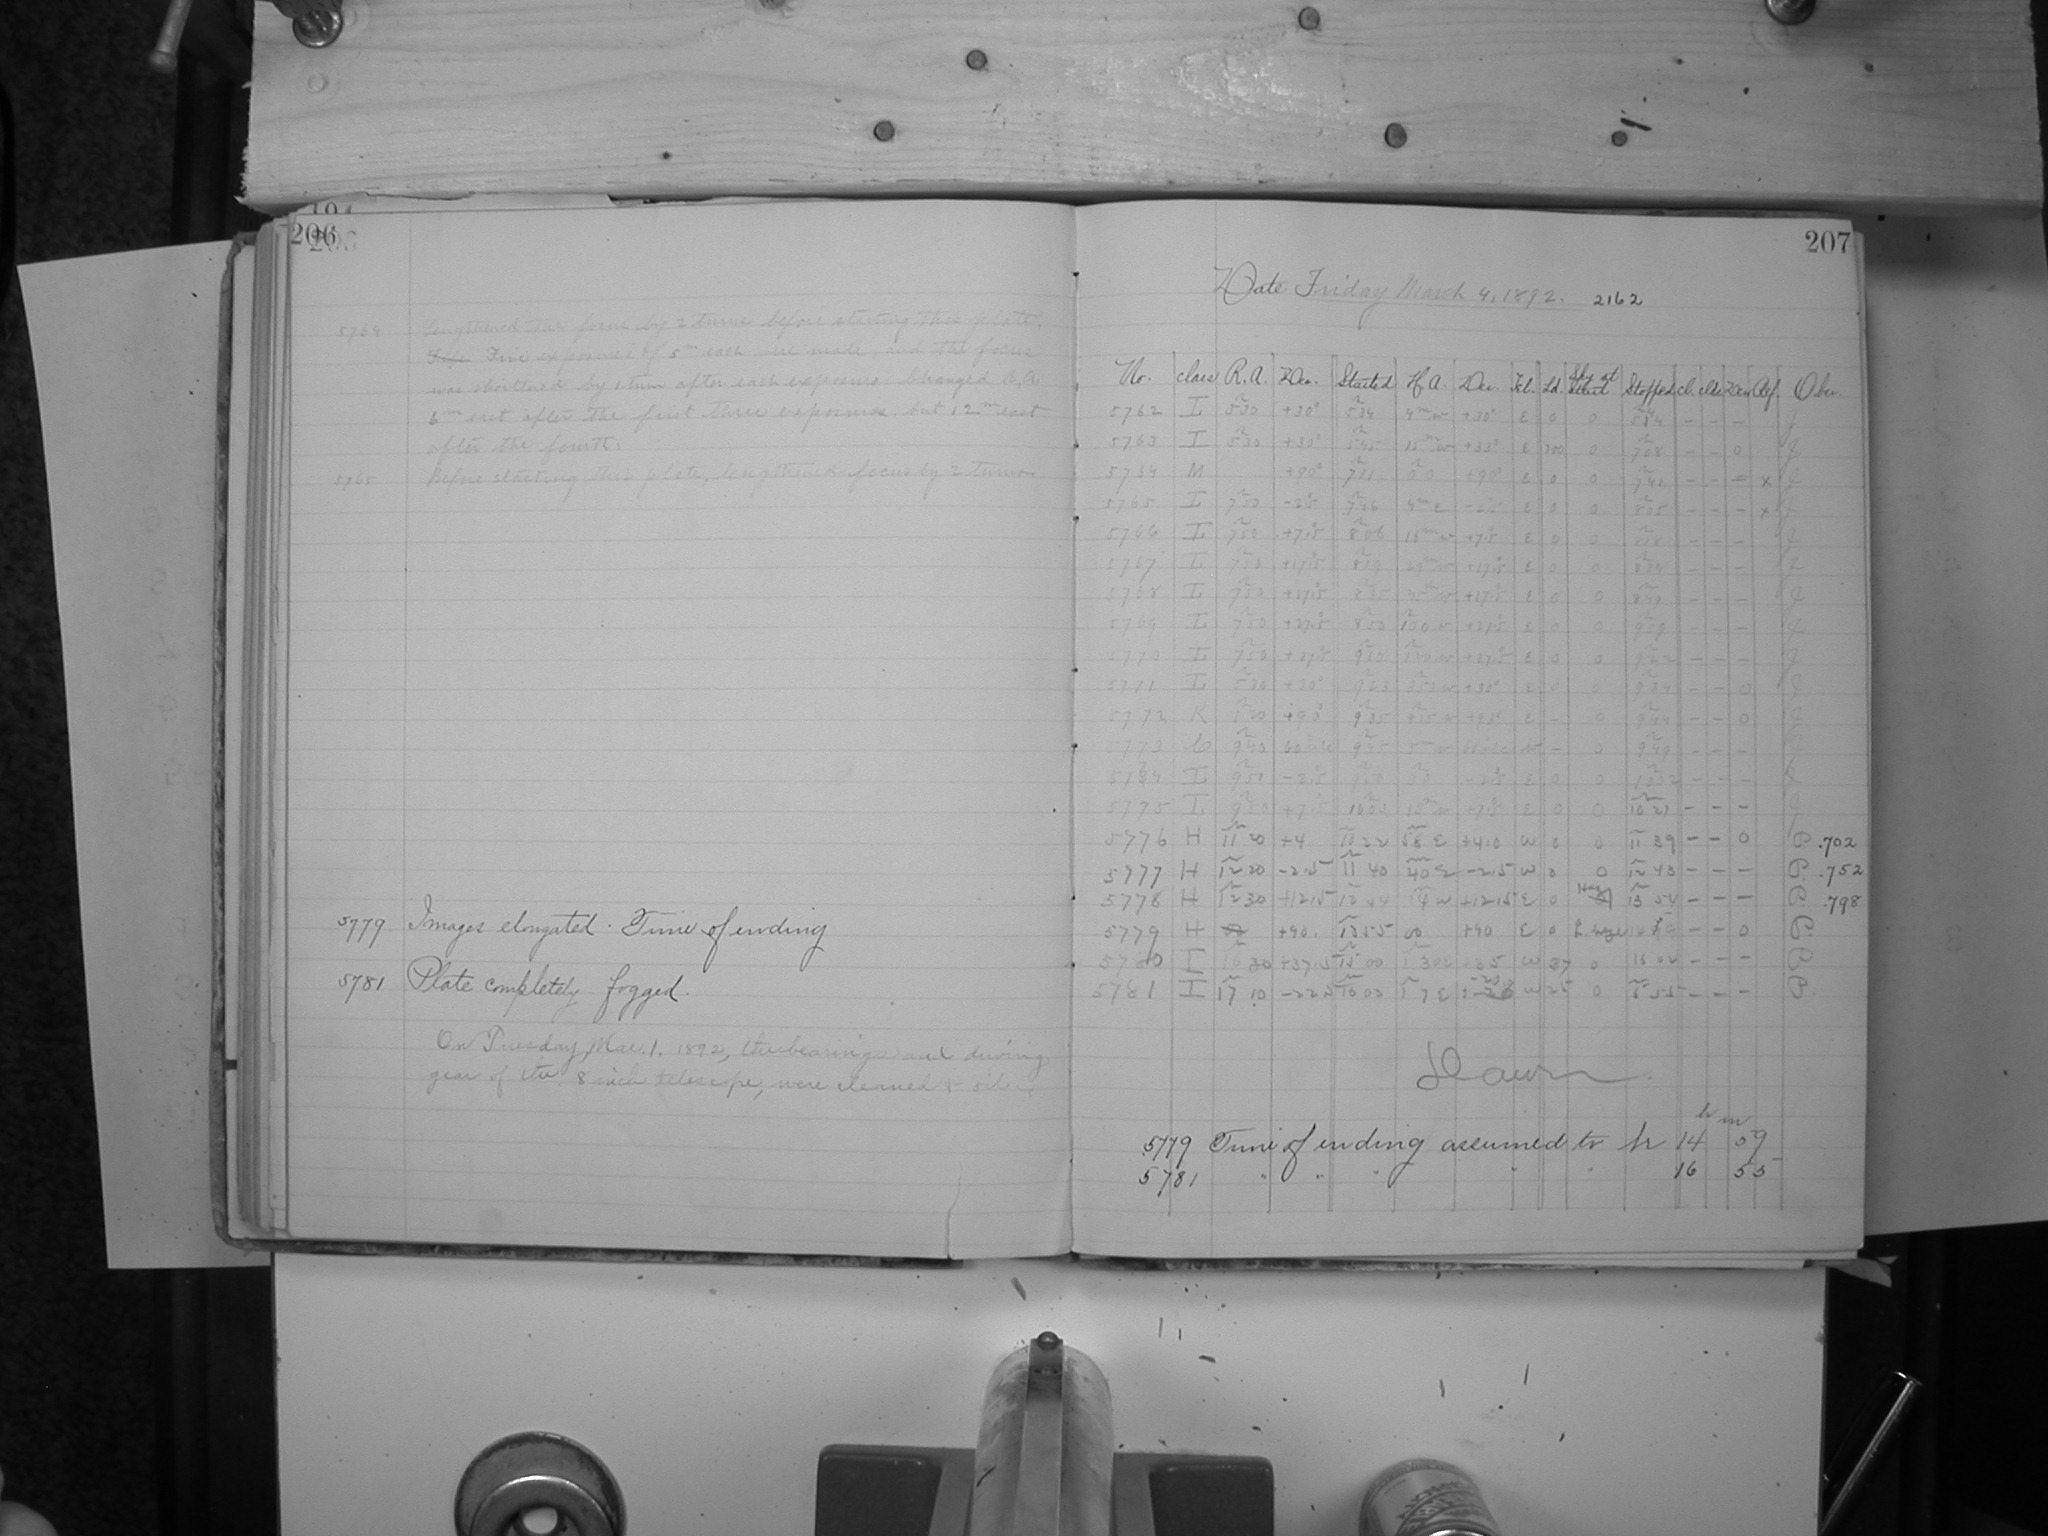 206
5764 Lengthened the focus by 2 turns before starting this plate.
Five exposures of 5m each were made, and the focus
was shortened by 1 turn after each exposure. Changed R.A.
6m east after the first three exposures, but 12m east
after the fourth.
5765 Before starting this plate, lengthened focus by 2 turns
5779 Images elongated. Time of ending
5781 Plate completely fogged.
On Tuesday, Mar. 1. 1892, the bearings and driving
gear of the 8 inch telescope, were cleaned & oiled.
207
Date Friday March 4, 1892. 2162
No. class R.A. Dec. Started H.A. Dec. Tel. Ld. Sky at Start Stopped cl. Dev Ref. Obser.
5762 I 5 30 +30° 5 34 4m w +30° E 0 0 5 44 - - - J
5763 I 5 30 +30° 5 45 15m w +33° E 200 0 7 08 - - 0 J
5764 M +90° 7 11 0 0 +90° E 0 0 7 41 - - = x J
5765 I 7 50 -2.5 7 46 4m E -2.5 E 0 0 8 05 - - - x J
5766 I 7 50 +7.5 8 06 16m w +7.5 E 0 0 - - - J
5767 I 7 50 +17.5 8 19 29m w +17.5 E 0 0 8 34 - - - J
5768 I 7 50 +17.5 8 35 45m w +17.5 E 0 0 8 49 - - - J
5769 I 7 50 +27.5 8 50 1 00 w +27.5 E 0 0 9 09 - - - J
5770 I 7 50 +37.5 9 10 +37.5 E 0 0 9 22 - - - J
5771 I 5 30 +30° 9 23 3 53 w +30° E 0 0 9 34 - - 0 J
5772 K 1 20 +90 9 35 8 15 w +93° E - 0 9 44 - - 0 J
5773 C 9 40 9 45 5m w w - 0 9 49 - - - J
5774 I 9 50 -2.5 9 50 0 0 -2.5 E 0 0 10 02 - - - J
5775 I 9 50 +7.5 10 03 +7.5 E 0 0 10 21 - - - J
5776 H 11 20 +4 10 22 58 E +4.0 W 0 0 11 39 - - 0 B .702
5777 H 12 20 -2.5 11 40 40 E -2.5 W 0 0 12 43 - - - B. .752
5778 H 12 30 +12.5 12 44 14 w +12.5 E 0 Hazy 13 54 - - - B .798
5779 H +90. 13 55 00 +90 E 0 L. haze 14 59 - - 0 B
5780 I 16 30 +37.5 15 00 1 30 E +35 W 37 0 16 02 - - - B
5781 I 17 10 -22.5 16 03 1 7 E W 25 0 - - - B.
Dawn
h m
5779 Time of ending assumed to be 14 59
5781 " " " " " 16 55